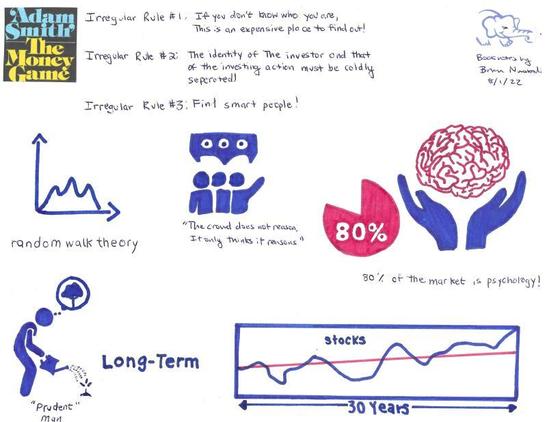 'Adam
Smith'
The
Money
Game
Irregular Rule #1: If you don't know who you are,
This is an expensive place to find out!
Irregular Rule #2: The identity of The investor and that
of the investing action must be coldly
seperated!
Irregular Rule #3: Find smart people!
Booknotes by
Brian
8/1/22
random walk theory
"The crowd does not reason,
It only thinks it reasons"
80%
80% of the market is psychology!
"Prudent"
Man
Long-Term
stocks
30 Years